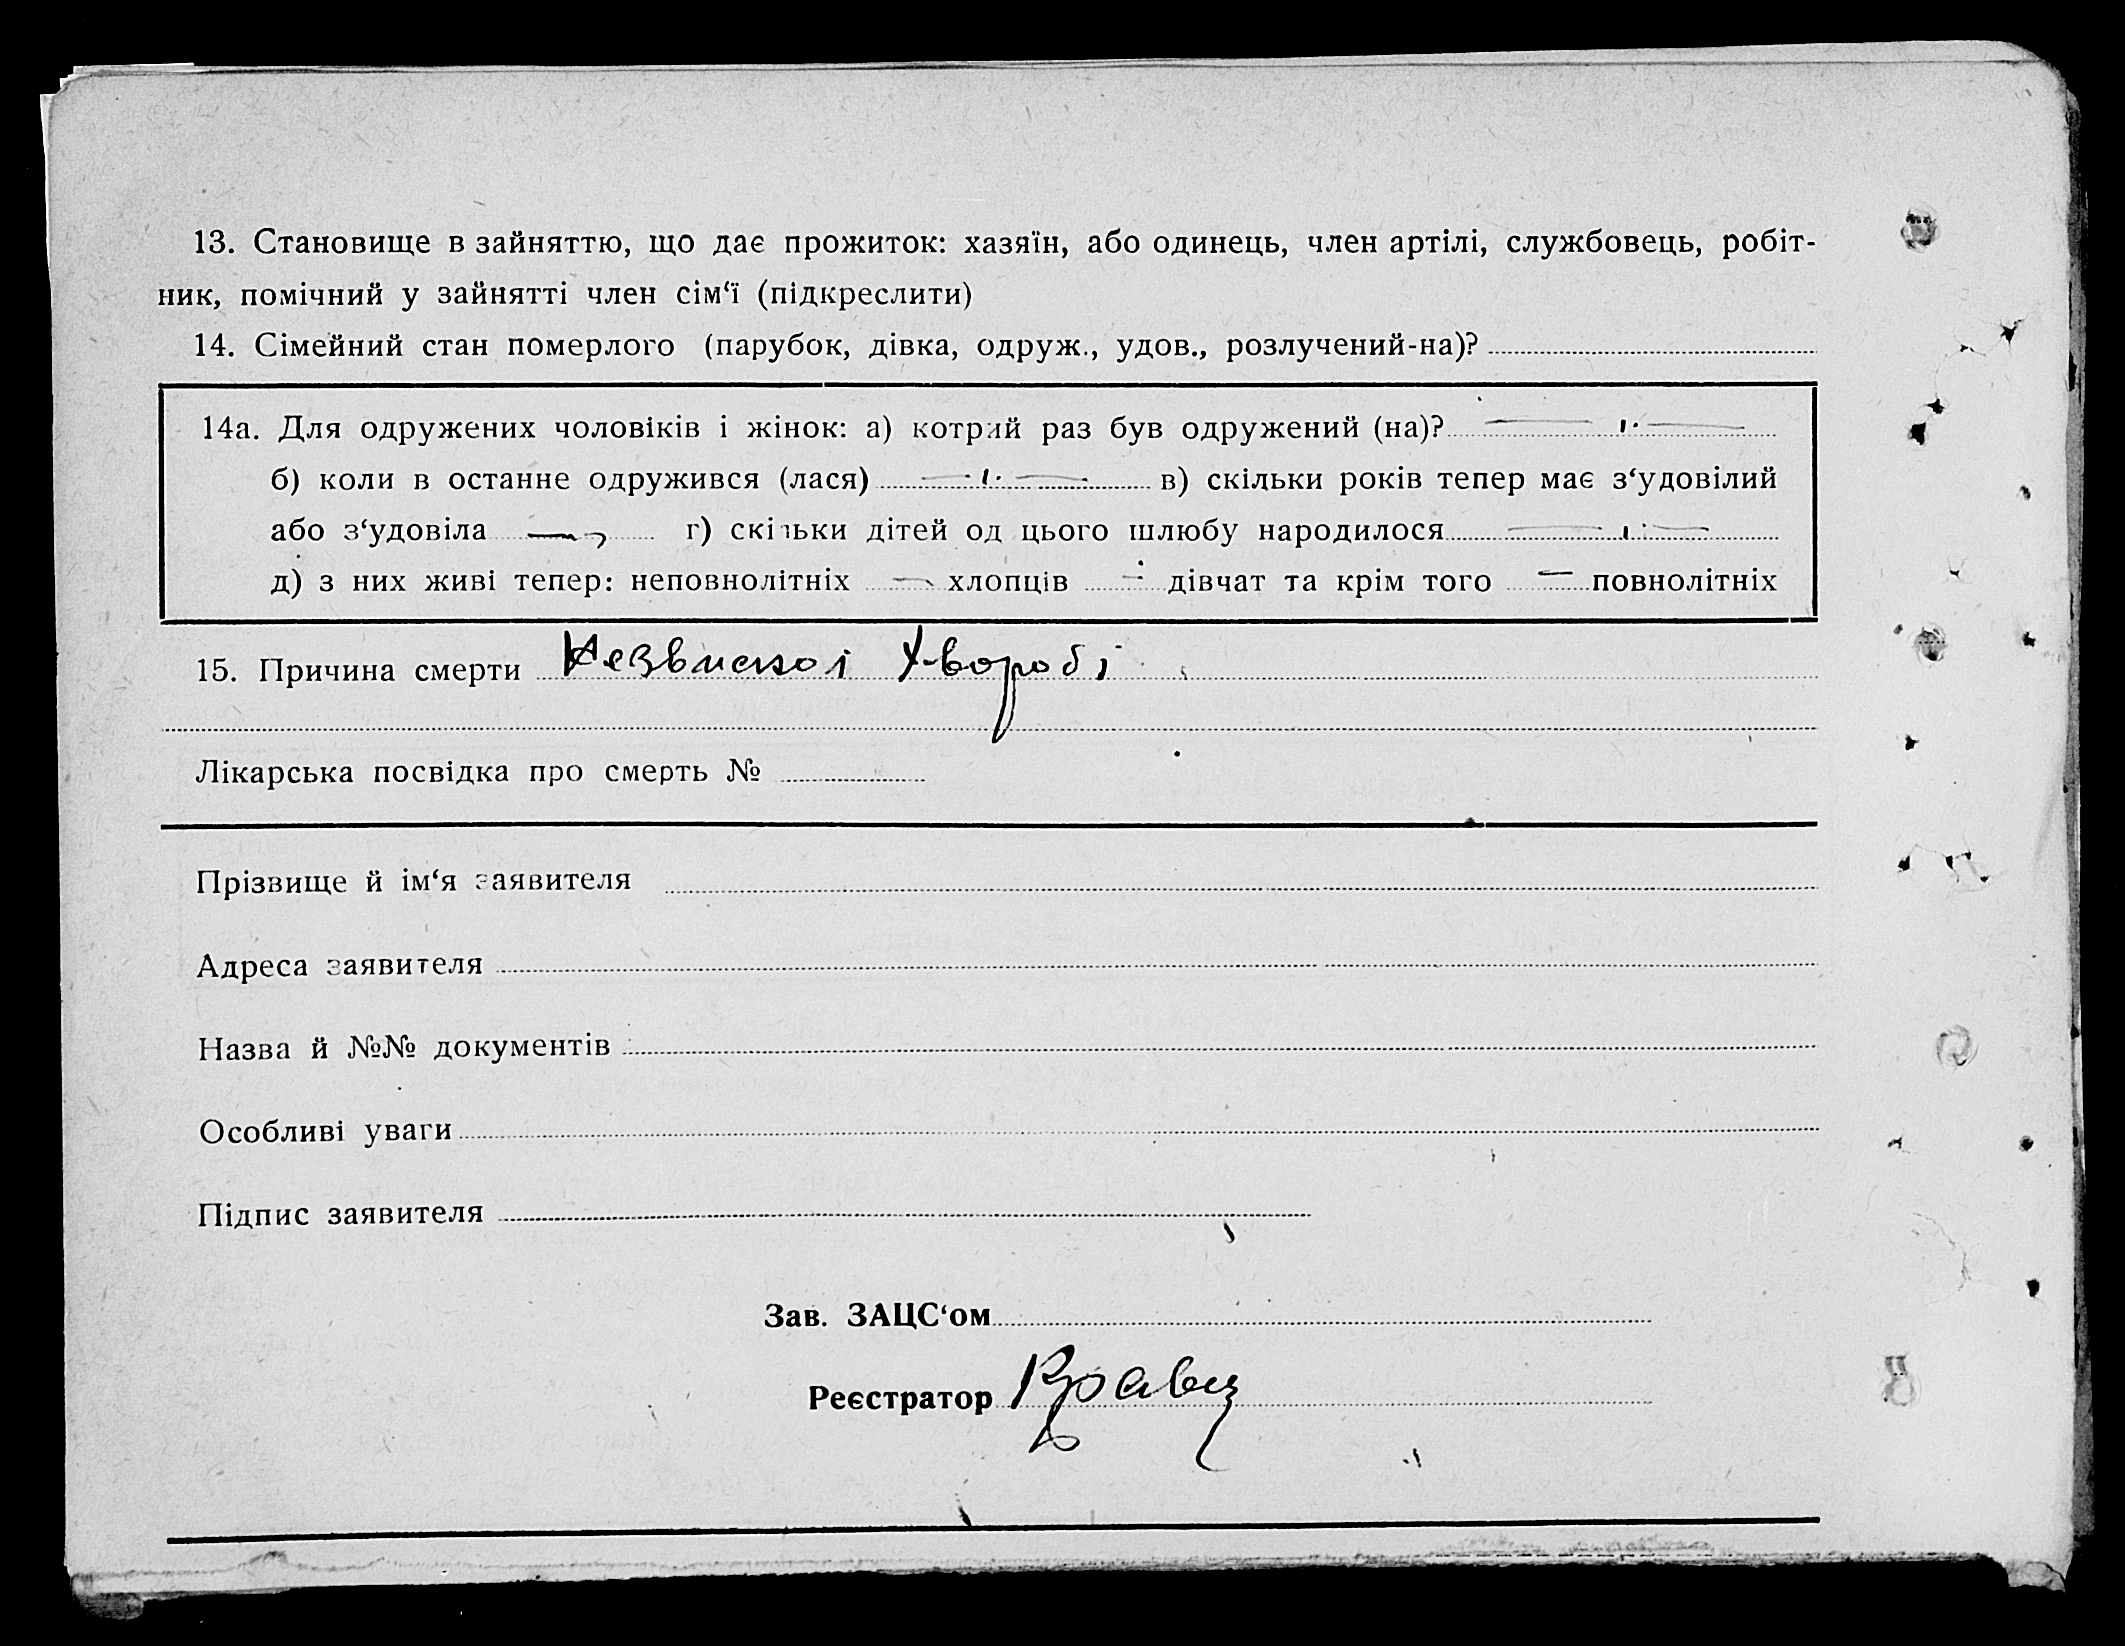 13. Становище в зайняттю, що дає прожиток: хазяїн, або одинець, член артілі, службовець, робіт-
ник, помічний у зайнятті член сім‘ї (підкреслити)
14. Сімейний стан померлого (парубок, дівка, одруж., удов., розлучений-на)?
14а. Для одружених чоловіків і жінок: а) котрий раз був одружений (на)?
б) коли в останне одружився (лася) в) скільки років тепер має з‘удовілий
або з‘удовіла г) скільки дітей од цього шлюбу народилося
д) з них живі тепер: неповнолітніх — хлопців — дівчат та крім того — повнолітніх
15. Причина смерти хвороби
Лікарська посвідка про смерть №
Прізвище й ім‘я заявителя
Адреса заявителя
Назва й №№ документів
Особливі уваги
Підпис заявителя
Зав. ЗАЦС‘ом
Реєстратор Кравец